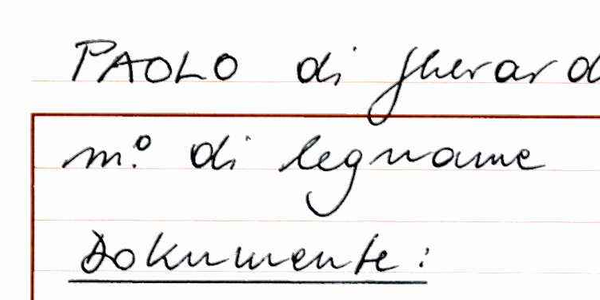 PAOLO di Gherard
m.º di legname
Dokumente: